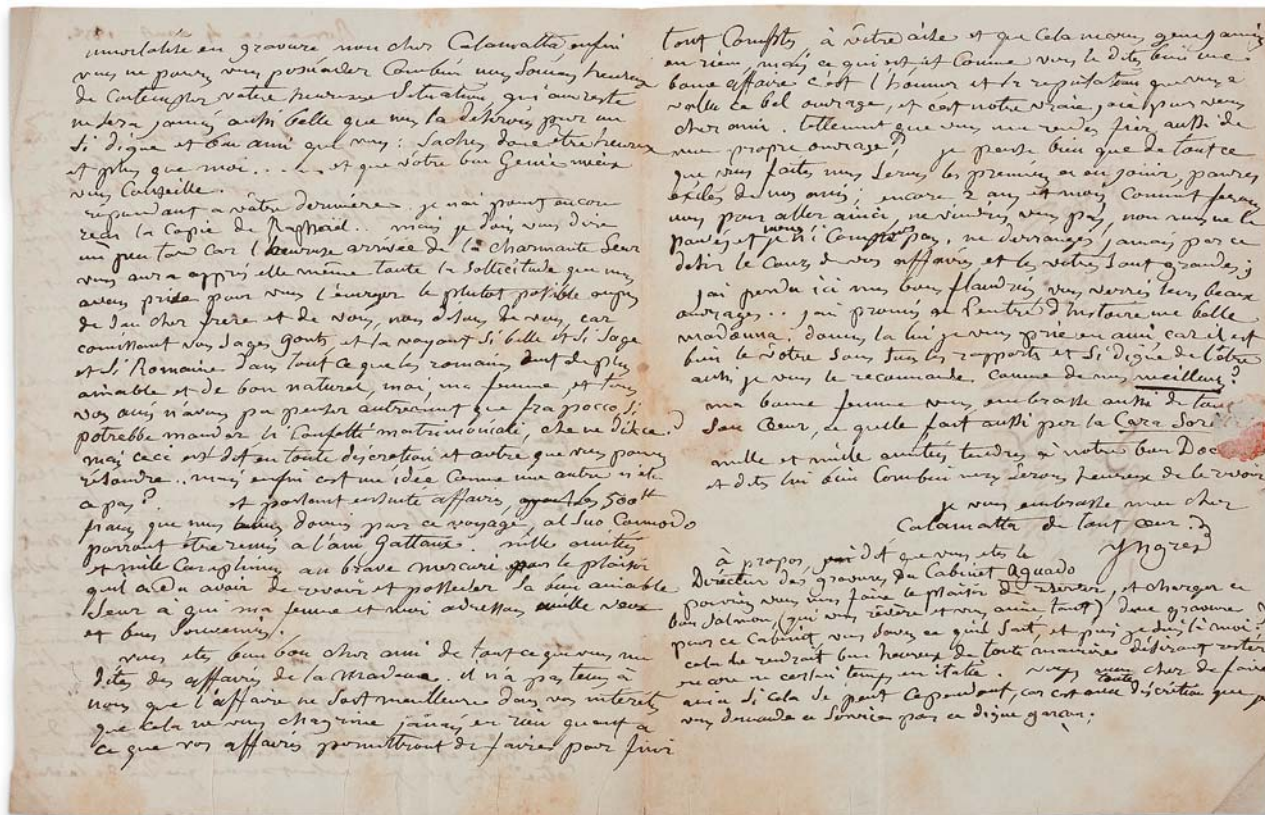 immortalisé en gravure mon cher Calamatta enfin
vous ne pouvez vous persuader Combien nous Somes heureux
de Contempler votre heureuse Situation, qui au reste
ne Sera jamais aussi belle que nous la desirons pour un
Si digne et bon ami que vous: Sachez donc etre heureux
et plus que moi.... et que votre bon Genie mieux
vous Conseille.
repondant a votre derniere. je n'ai point encore
recu la Copie de Raphael.. mais je dois vous dire
un peu tard car l'heureuse arrivée de la charmante Seur
vous aura appris elle même toute la Sollicitude que nous
avons prise pour vous l'envoyer le plutot possible aupres
de Son cher frere et de vous, nous disons de vous, car
conoissant vos Sages gouts et la voyant Si belle et Si Sage
et Si Romaine dans tout ce que les romains ont de plus
aimable et de bon naturel, moi, ma femme, et tous
vos amis n'avons pu penser autrement que fra pocco, Si
potrebbe mandar li Confetti matrimoniali, che ne dice?
mais ceci est dit en toute discretion et autre que vous pouvez
resoudre.. mais enfin c'est une idée Comme une autre n'est
ce pas? et parlant ensuite affaires, les 500 ff
francs que nous avons donnés pour ce voyage, al Suo Comodo
pourront être remis a l'ami Gatteaux. mille amitiés
et mille Complimens au brave mercuri pour le plaisir
qu'il a du avoir de revoir et posseder Sa bien aimable
Seur à qui ma femme et moi adressons mille vœux
et bons Souvenirs.
vous etes bien bon cher ami de tout ce que vous me
dites des affaires de la Madone. il n'a pas tenu à
nous que l'affaire ne Soit meilleure dans vos interets
que cela ne vous chagrine jamais en rien quant a
ce que vos affaires permettront de faire pour finir
tout Comptes, à votre aise et que cela ne vous gene jamais
en rien, mais ce qui est et Comme vous le dites bien une
bonne affaire c'est l'honneur et la reputation que vous a
vallu ce bel ouvrage, et c'est notre vraie joie pour vous
cher ami. tellement que vous me rendez fier aussi de
mon propre ouvrage? je pense bien que de tout ce
que vous faites nous Serons les premiers a en jouir, pauvres
exilés de nos amis; encore 2 ans et mois Comment ferons
nous pour aller ainsi, ne viendrez vous pas, non vous ne le
pouvez et nous n'i Comptons pas, ne derangez jamais par ce
desir le Cours de vos affaires et les votres Sont grandes;
j'ai perdu ici mes bons flandrin vous verrez leurs beaux
ouvrages.. j'ai promis a Peintre d'histoire une belle
madonna. donnez la lui je vous prie en ami, car il est
bien le votre Sous tous les rapports et Si digne de l'être
aussi je vous le recommande comme de nos meilleurs?
ma bonne femme vous embrasse aussi de tout
Son Cœur, ce qu'elle fait aussi pour la Cara Sore
mille et mille amitiés tendres à notre bon Doc
et dites lui bien Combien nous Serons heureux de le revoir
je vous embrasse mon cher
Calamatta de tout cœur.
Yngres
à propos, on dit que vous etes le
Directeur des gravures du Cabinet Aguado
pourriez vous nous faire le plaisir de reserver, et charger ce
bon Salmon, (qui vous révère et vous aime tant) d'une gravure
pour ce Cabinet, vous Savez ce qu'il Sait, et puis je Suis là moi?
cela le rendrait bien heureux de toute maniere désirant rester
encore un certain temps en italie. voyez mon cher de faire
ainsi Si cela Se peut Cependant, car c'est avec toute discrétion que je
vous demande ce Service pour ce digne garcon;